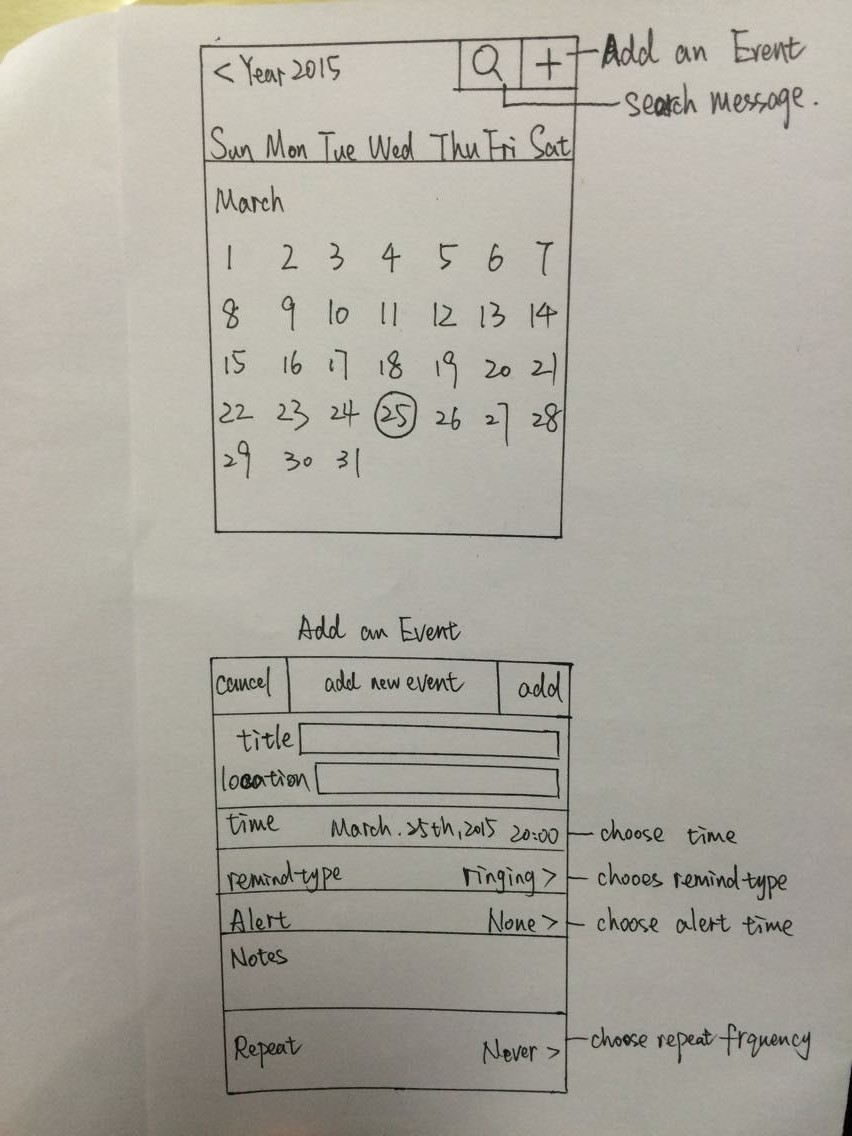 < Year 2015 + Add an Event
search message.
Sun Mon Tue Wed Thu Fri Sat
March
1 2 3 4 5 6 7
8 9 10 11 12 13 14
15 16 17 18 19 20 21
22 23 24 25 26 27 28
29 30 31
Add an Event
cancel add new event add
title
location
time March. 25th, 2015 20:00 choose time
remind type ringing > chooes remind type
Alert None > choose alert time
Notes
Repeat Never > choose repeat frquency